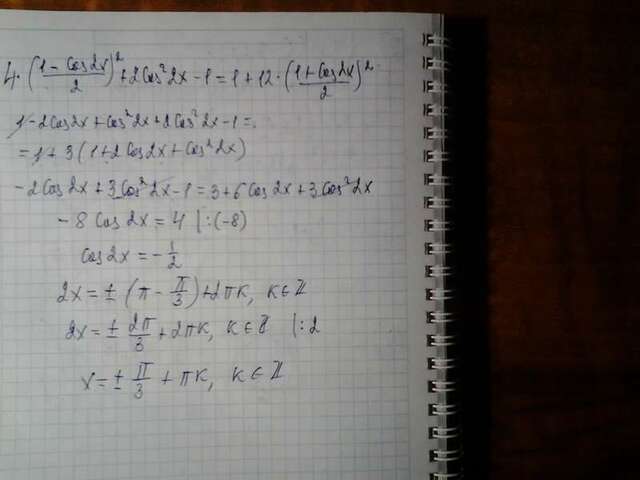 4·((1-Cos2x)/2)²+2Cos²2x-1=1+12·((1+Cos2x)/2)²
1-2Cos2x+Cos²2x+2Cos²2x-1=
=1+3(1+2Cos2x+Cos²2x)
-2Cos2x+3Cos²2x-1=3+6Cos2x+3Cos²2x
-8Cos2x=4 |:(-8)
Cos2x=-1/2
2x=±(π-π/3)+2πk, k∈ℤ
2x=±2π/3+2πk, k∈ℤ |:2
x=±π/3+πk, k∈ℤ